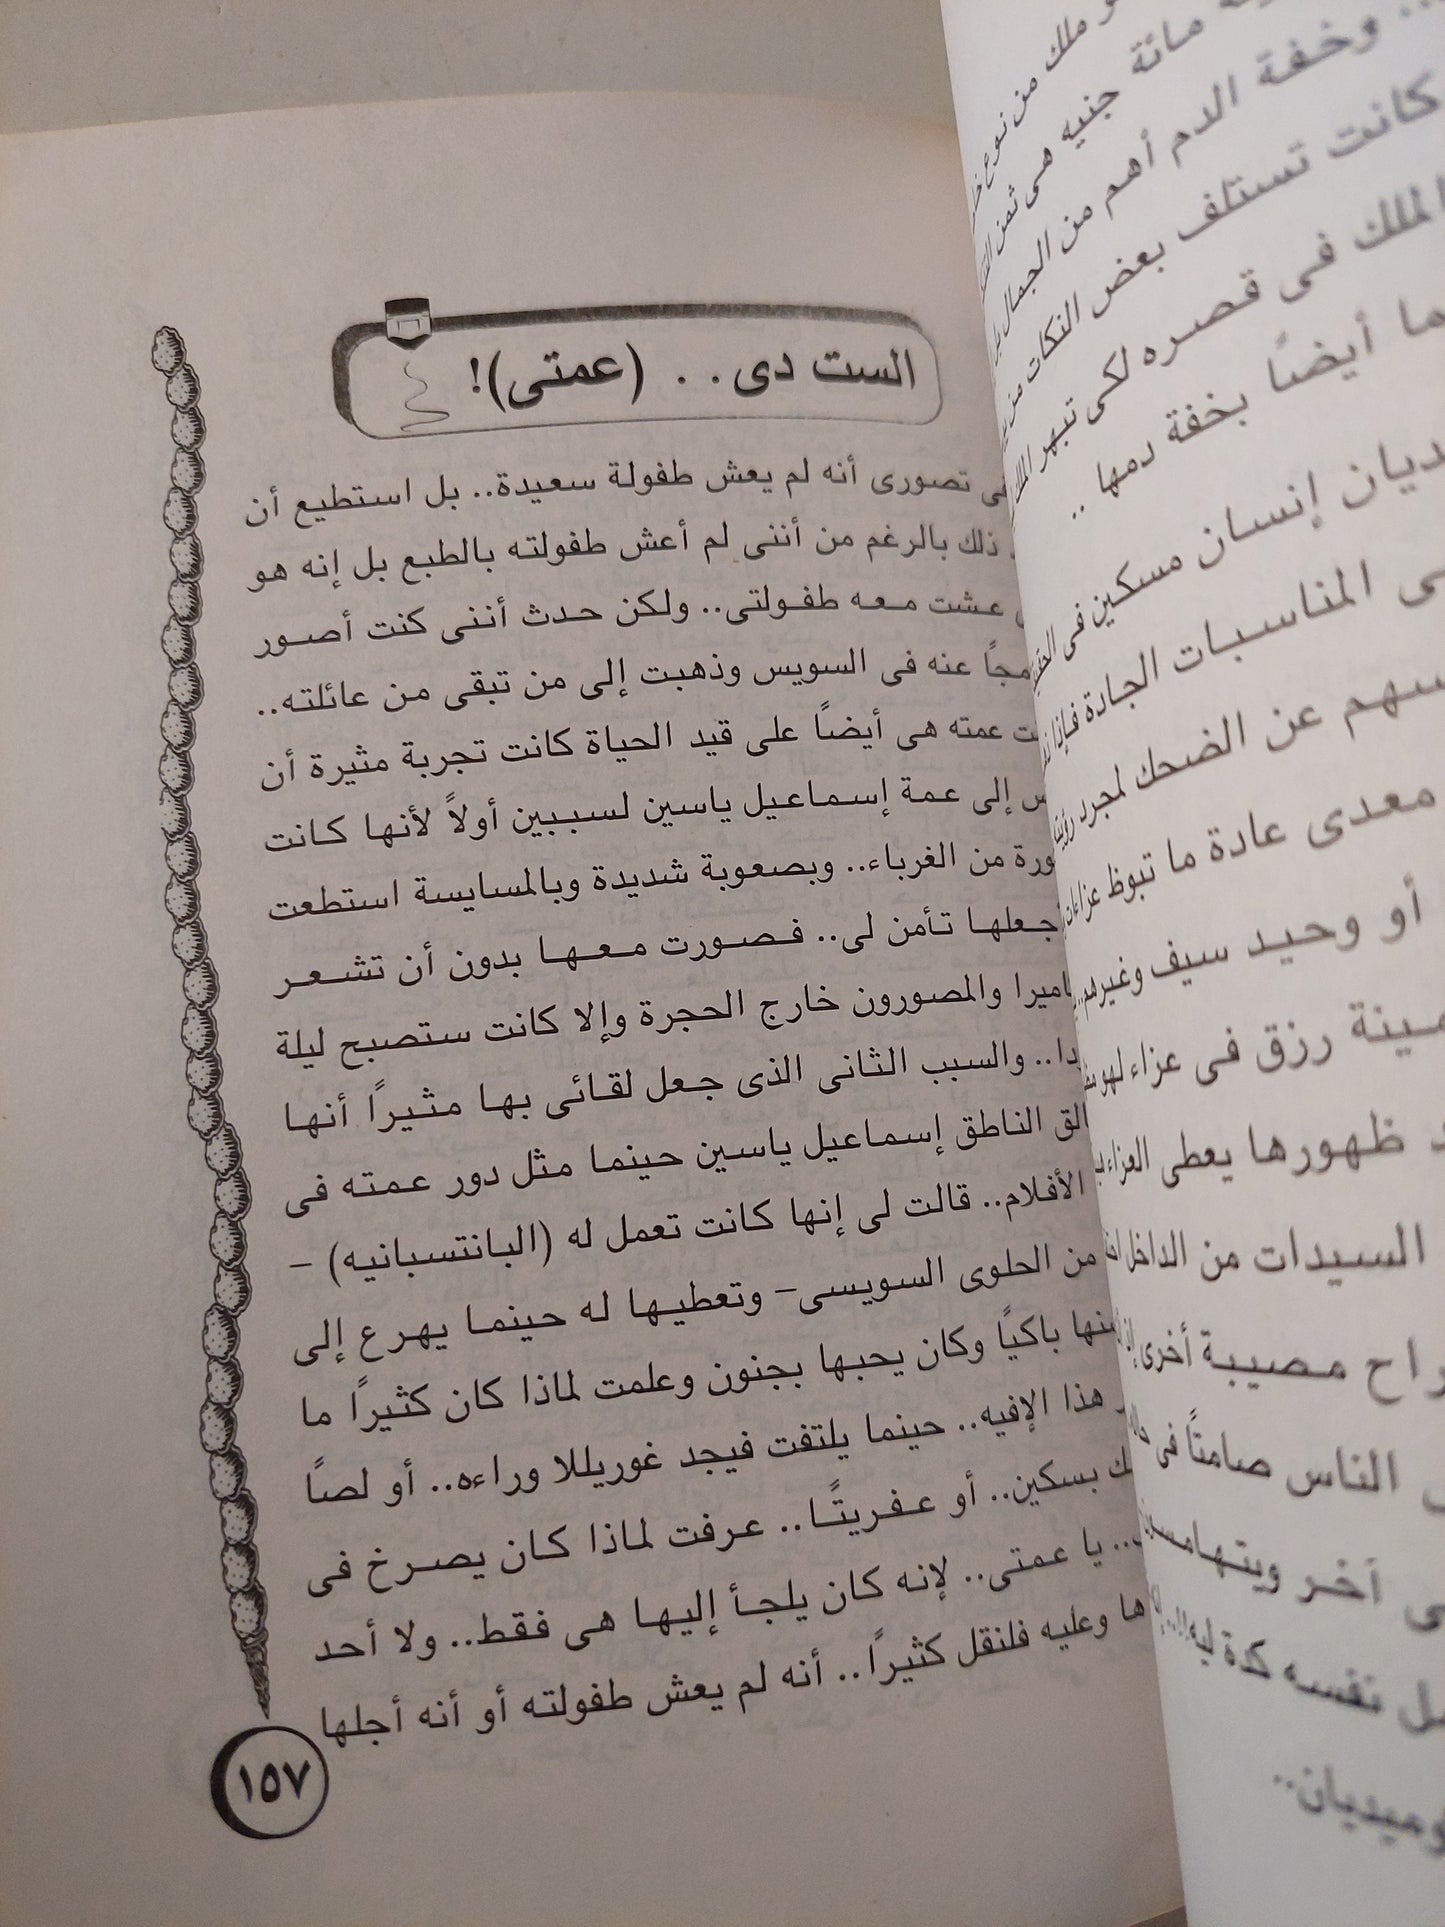 الست دى . . (عمتى)!
تصورى أنه لم يعش طفولة سعيدة.. بل استطيع أن
ذلك بالرغم من أننى لم أعش طفولته بالطبع بل إنه هو
عشت معه طفولتى.. ولكن حدث أننى كنت أصور
عنه فى السويس وذهبت إلى من تبقى من عائلته..
عمته هى أيضاً على قيد الحياة كانت تجربة مثيرة أن
إلى عمة إسماعيل ياسين لسببين أولاً لأنها كانت
من الغرباء.. وبصعوبة شديدة وبالمسايسة استطعت
جعلها تأمن لى.. فصورت معها بدون أن تشعر
والمصورون خارج الحجرة وإلا كانت ستصبح ليلة
والسبب الثانى الذى جعل لقائى بها مثيراً أنها
الناطق إسماعيل ياسين حينما مثل دور عمته فى
الأفلام.. قالت لى إنها كانت تعمل له (البانتسبانيه) –
من الحلوى السويسى– وتعطيها له حينما يهرع إلى
باكيًا وكان يحبها بجنون وعلمت لماذا كان كثيرًا ما
هذا الإفيه.. حينما يلتفت فيجد غوريللا وراءه.. أو لصًا
بسكين.. أو عفريتًا.. عرفت لماذا كان يصرخ فى
.. يا عمتى.. لإنه كان يلجأ إليها هى فقط.. ولا أحد
وعليه فلنقل كثيرًا.. أنه لم يعش طفولته أو أنه أجلها
١٥٧
ملك من نوع
مائة جنيه هى ثمن
.. وخفة الدم أهم من الجمال
كانت تستلف بعض النكات من
الملك فى قصره لكى تبهر
أيضًا بخفة دمها ..
إنسان مسكين فى
المناسبات الجادة فإذا
عن الضحك لمجرد
معدى عادة ما تبوظ
أو وحيد سيف وغيرهم..
رزق فى عزاء
ظهورها يعطى العزاء
السيدات من الداخل
مصيبة أخرى
الناس صامتًا فى
آخر
نفسه كدة ليه